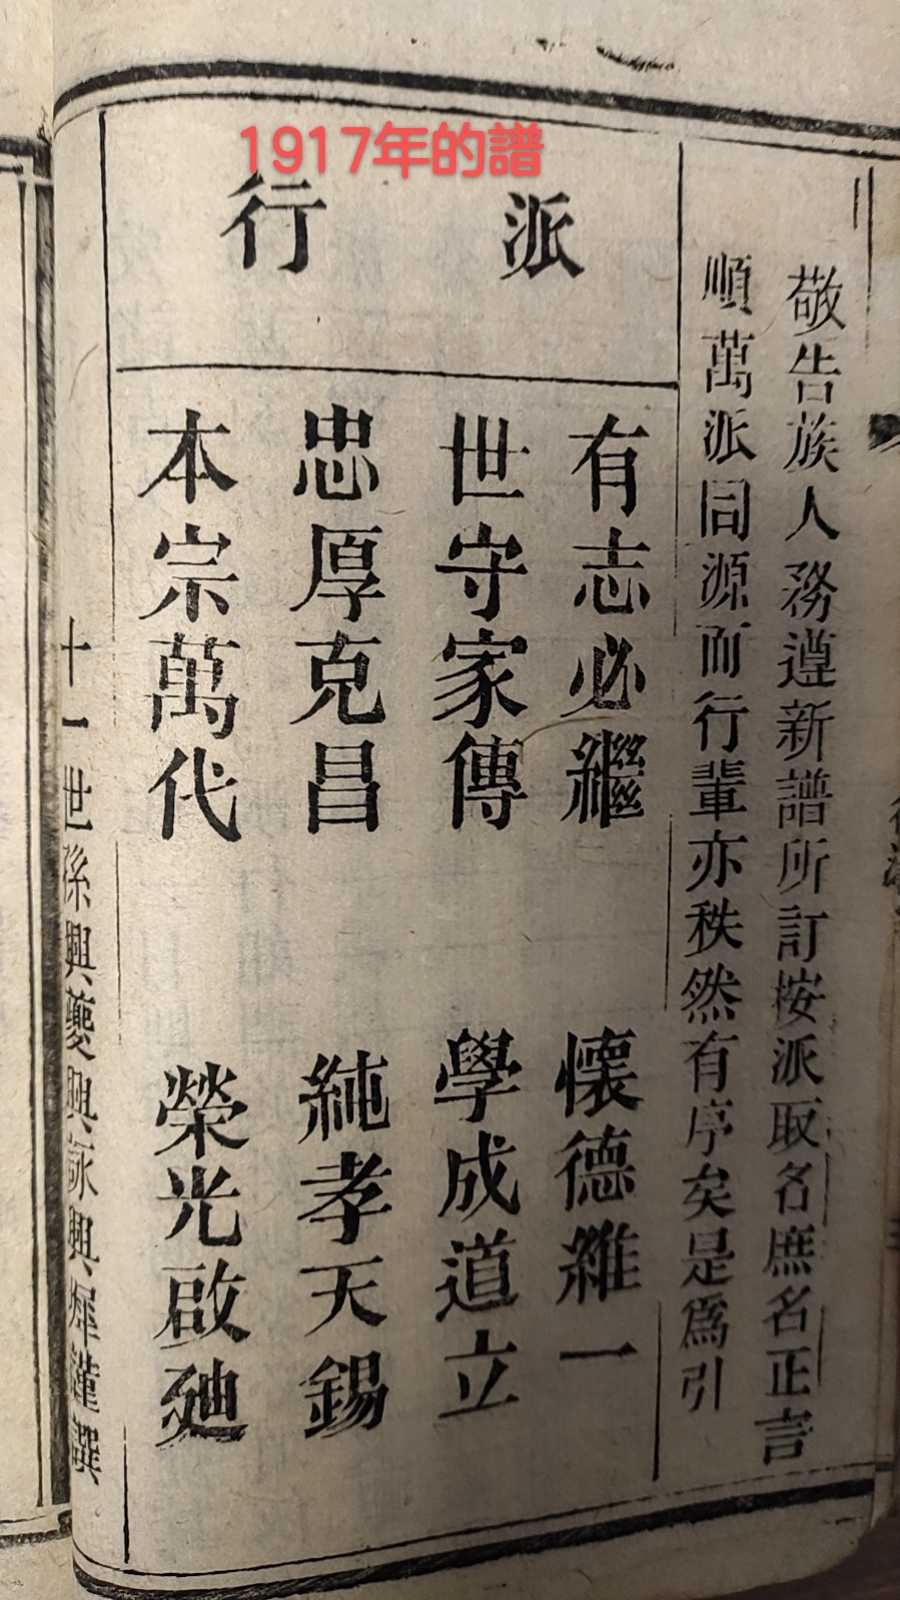 1917年的譜
敬告族人務遵新譜所訂按派取名庶名正言
順萬派同源而行輩亦秩然有序矣是爲引
派行
有志必繼 懷德維一
世守家傳 學成道立
忠厚克昌 純孝天錫
本宗萬代 榮光啟廸
十一世孫興夔興詠興謹撰